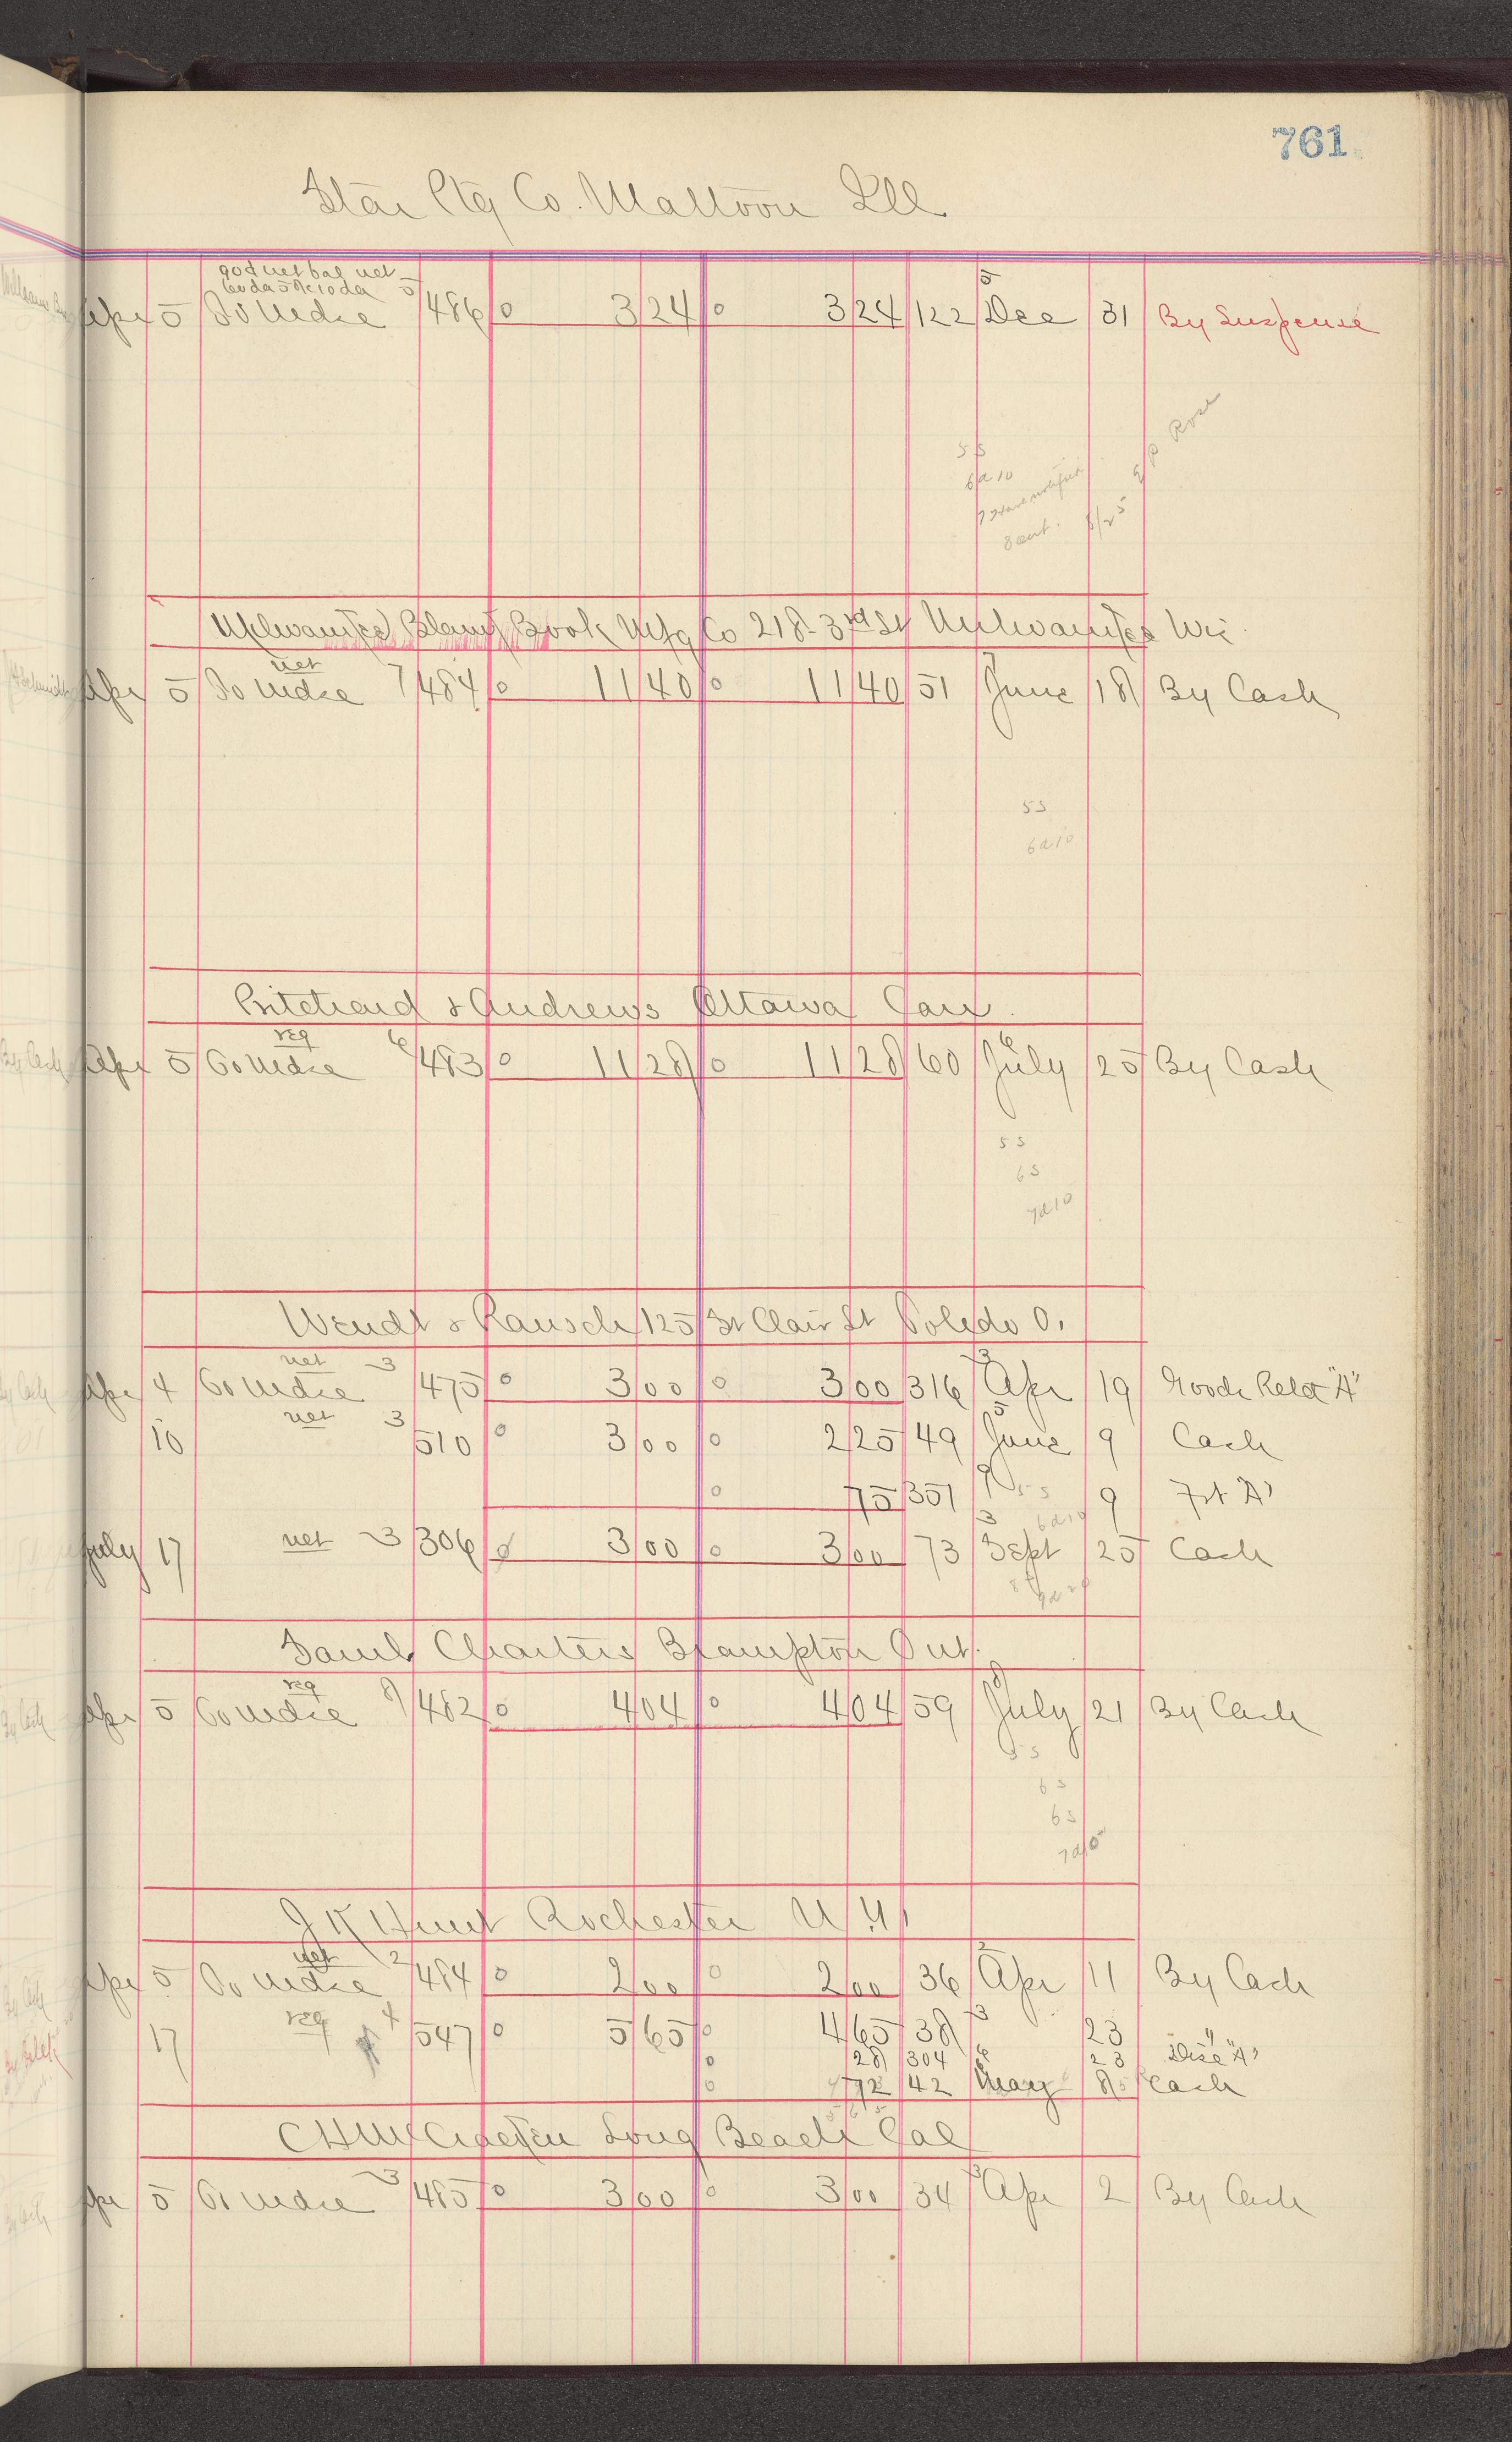 761
Star Ptg Co. Mattoon Ill
net bal net
60 da 5% 10 da 5
Apr 5 To Mdse 486 0 3 24 0 3 24 122 Dec 31 By Suspense
5
5 S
6 d 10
7 have notified
8 ent. 8/25 Rose
Milwaukee Blank Book Mfg Co 218-3rd St Milwaukee Wis
net
Apr 5 To Mdse 7 484 0 11 40 0 11 40 51 June 18 By Cash
5 S
6 d 10
Pritchard & Andrews Ottawa Can
reg
Apr 5 To Mdse 6 483 0 11 28 0 11 28 60 July 25 By Cash
5 S
6 S
7 d 10
Wendt & Rausch 125 St Clair St Toledo O.
net 3
Apr 4 To Mdse 475 0 3 00 0 3 00 316 Apr 19 Goods Retd "A"
10 net 3 510 0 3 00 0 2 25 49 June 9 Cash
0 75 351 9 Frt "A"
5 S
6 d 10
July 17 net 3 306 0 3 00 0 3 00 73 Sept 25 Cash
Saml Charters Brampton Ont.
reg
Apr 5 To Mdse 482 0 4 04 0 4 04 59 July 21 By Cash
5 S
6 S
6 S
7 d 5
J K Hunt Rochester N.Y.
net
Apr 5 To Mdse 2 484 0 2 00 0 2 00 36 Apr 11 By Cash
17 reg 4 547 0 5 65 0 4 65 38 23 "
0 28 304 23 Disc "A"
0 72 42 May 8 Cash
Long Beach Cal
Apr 5 To Mdse 3 485 0 3 00 0 3 00 34 Apr 2 By Cash